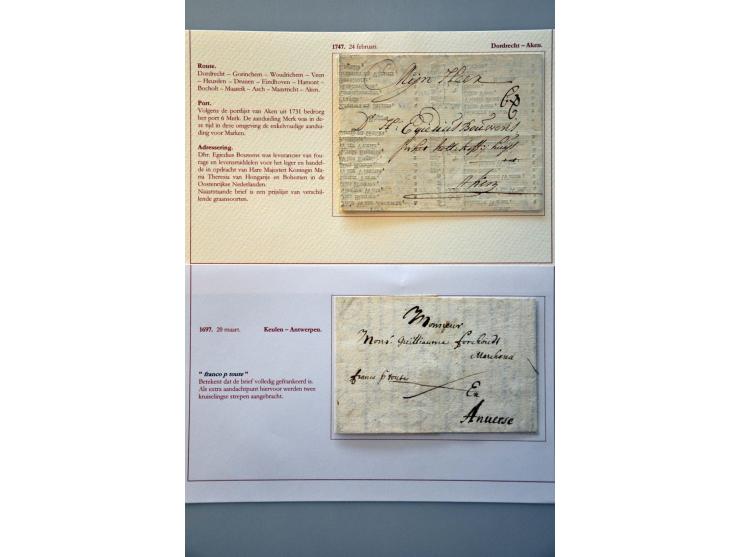 1747. 24 februari. Dordrecht – Aken.
Route.
Dordrecht – Gorinchem – Woudrichem – Veen
– Heusden – Drunen – Eindhoven – Hamont –
Bocholt – Maaseik – Asch – Maastricht – Aken.
Port.
Volgens de portlijst van Aken uit 1731 bedroeg
het port 6 Merk. De aanduiding Merk was in de-
ze tijd in deze omgeving de enkelvoudige aandui-
ding voor Marken.
Adressering.
Dhr. Egeedius Bouwens was leverancier van fou-
rage en levensmiddelen voor het leger en handel-
de in opdracht van Hare Majesteit Koningin Ma-
ria Theresia van Hongarije en Bohemen in de
Oostenrijkse Nederlanden.
Naaststaande brief is een prijslijst van verschil-
lende graansoorten.
Mijn Heer
H: Egedius Bouwens
Aken
1697. 20 maart. Keulen – Antwerpen.
" franco p toute "
Betekent dat de brief volledig gefrankeerd is.
Als extra aandachtspunt hiervoor werden twee
kruiselingse strepen aangebracht.
Monsieur
Mons: Guilliaume forchoudt
Marchand
franco p toute
En
Anuerse